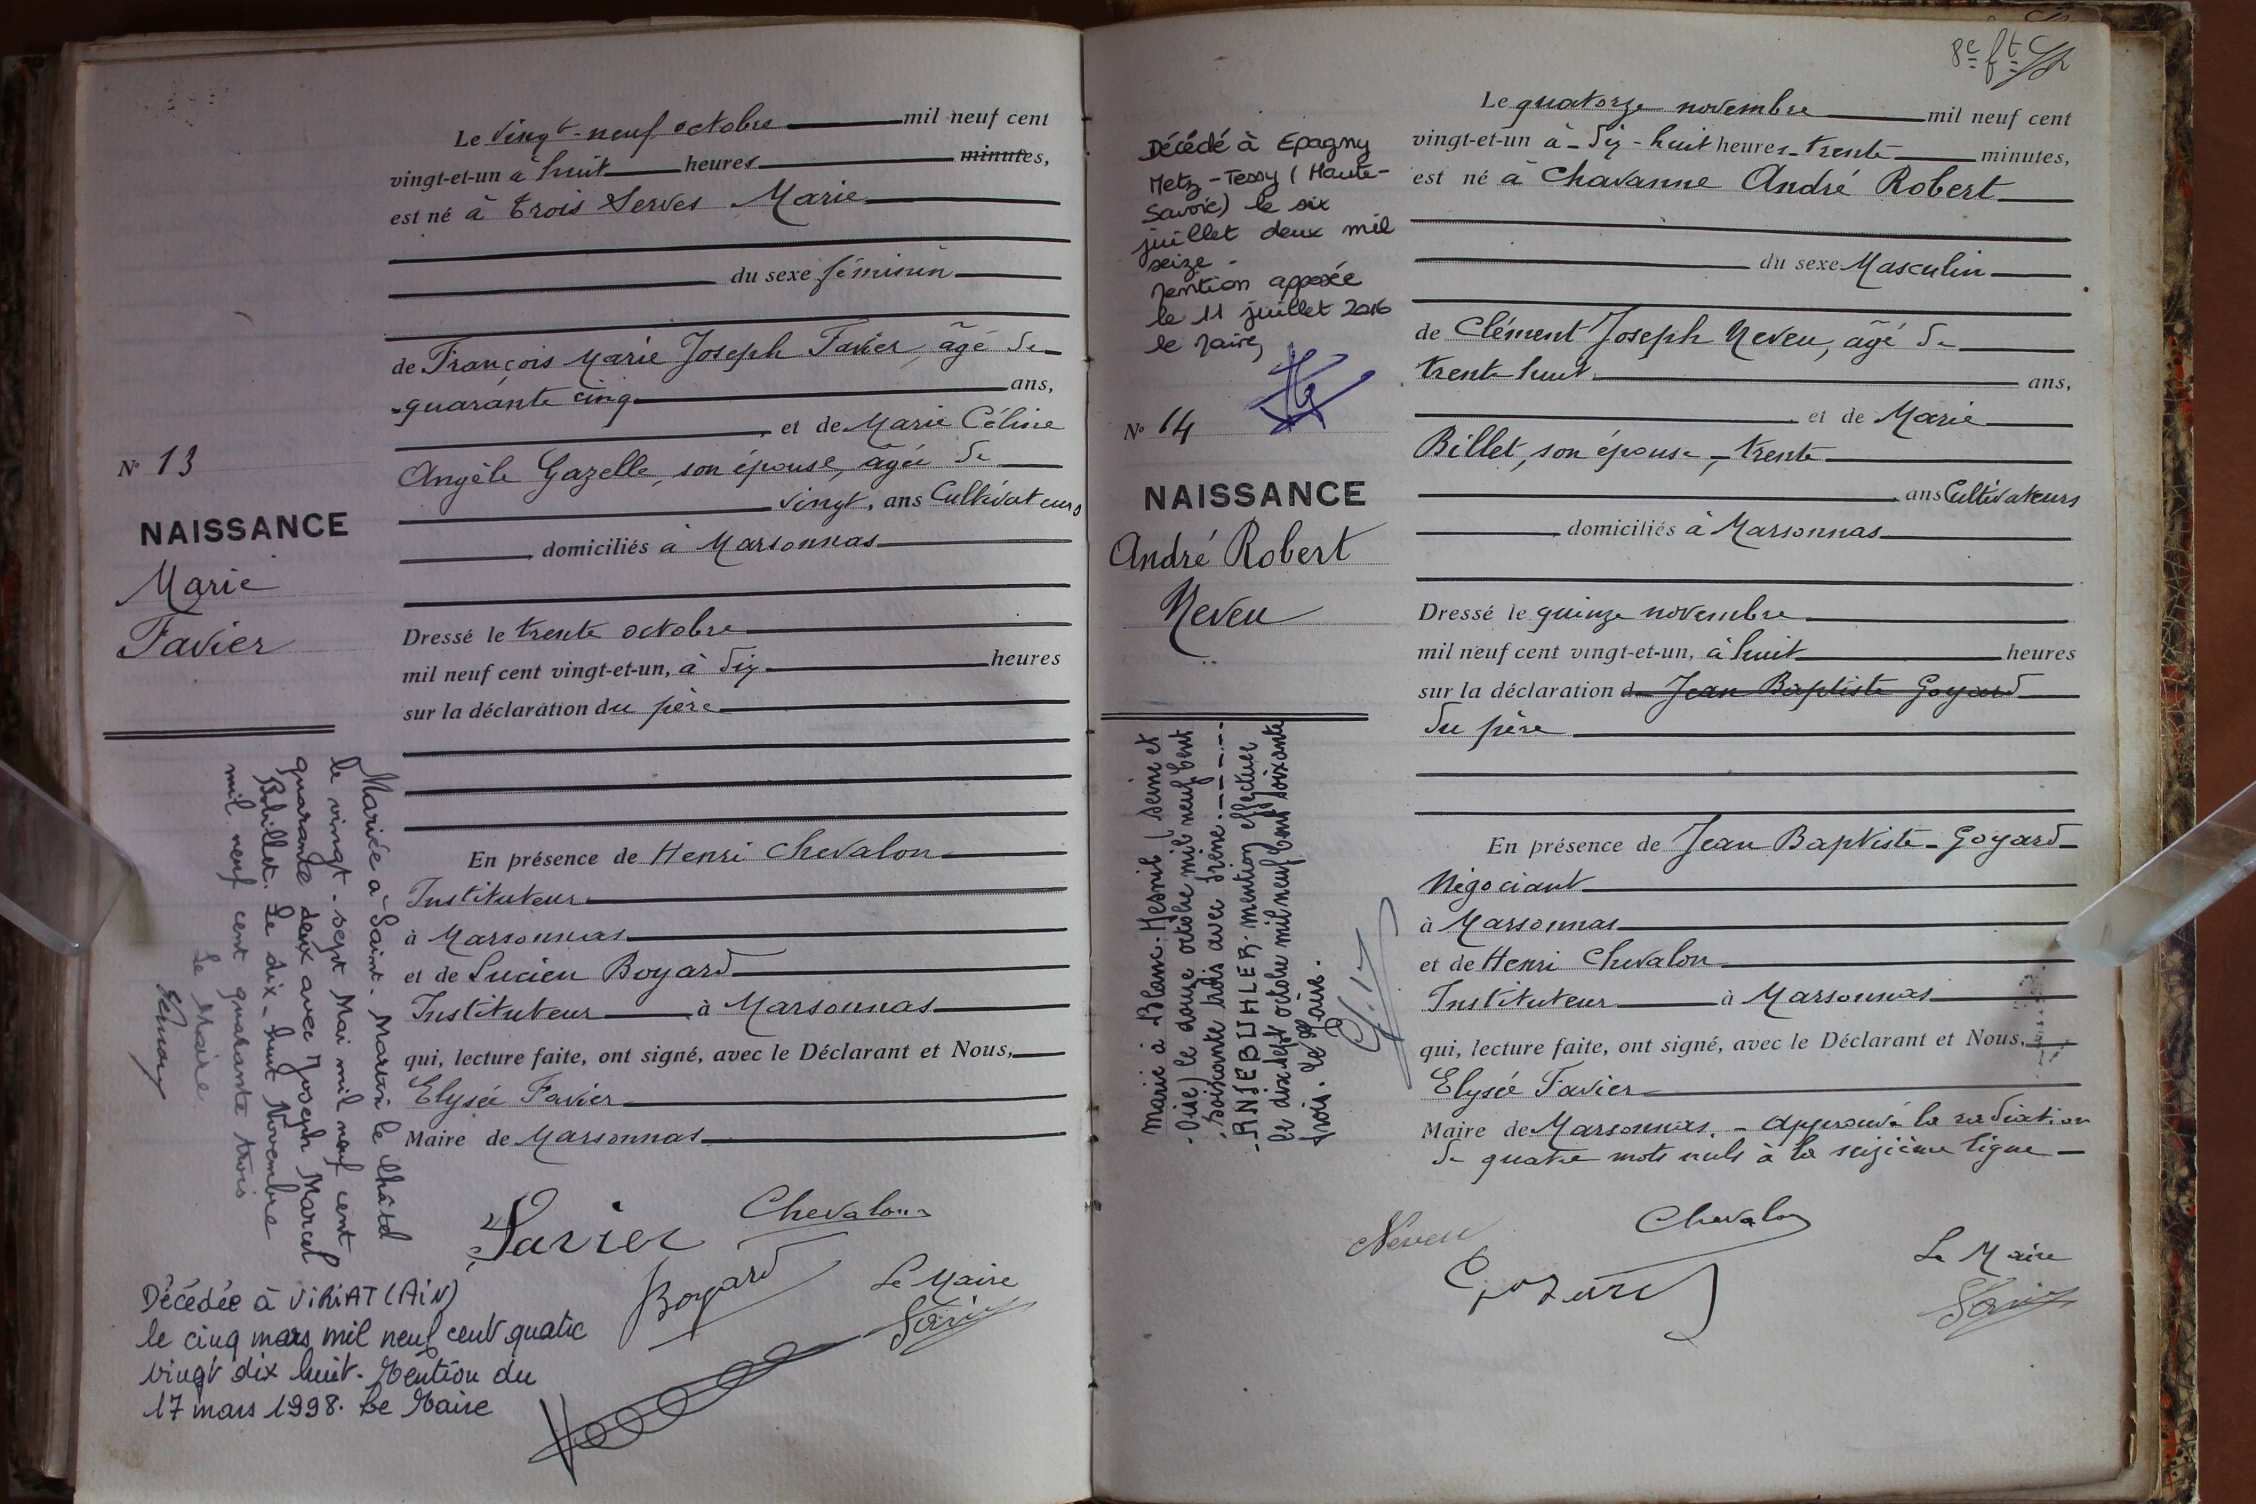 Le vingt-neuf octobre mil neuf cent
vingt-et-un à huit heures minutes,
est né à trois Serves Marie
du sexe féminin
de François Marie Joseph Favier, âgé de
quarante cinq ans,
et de Marie Céline
Angèle Gazelle, son épouse, âgée de
vingt, ans Cultivateurs
domiciliés à Marsonnas
Dressé le trente octobre
mil neuf cent vingt-et-un, à dix heures
sur la déclaration du père
En présence de Henri Chevalon
Instituteur
à Marsonnas
et de Lucien Boyard
Instituteur à Marsonnas
qui, lecture faite, ont signé, avec le Déclarant et Nous,
Elysée Favier
Maire de Marsonnas
Favier Chevalon
Boyard Le Maire
Favier
N° 13
NAISSANCE
Marie
Favier
Mariée à Saint-Martin le Châtel
le vingt-sept Mai mil neuf cent
quarante deux avec Joseph Marcel
Robillet. Le dix-huit Novembre
mil neuf cent quarante trois
Le Maire
Décédée à VIRIAT (AIN)
le cinq mars mil neuf cent quatre
vingt dix huit. Mention du
17 mars 1998. Le Maire
8e ft
Le quatorze novembre mil neuf cent
vingt-et-un à dix-huit heures trente minutes,
est né à Chavanne André Robert
du sexe Masculin
de Clément Joseph Neveu, âgé de
trente huit ans,
et de Marie
Billet, son épouse, trente
ans Cultivateurs
domiciliés à Marsonnas
Dressé le quinze novembre
mil neuf cent vingt-et-un, à huit heures
sur la déclaration de Jean Baptiste Goyard
du père
En présence de Jean Baptiste Goyard
Négociant
à Marsonnas
et de Henri Chevalon
Instituteur à Marsonnas
qui, lecture faite, ont signé, avec le Déclarant et Nous,
Elysée Favier
Maire de Marsonnas. - Approuvé la radiation
de quatre mots nuls à la seizième ligne -
Neveu Chevalon
Goyard Le Maire
Favier
Décédé à Epagny
Metz-Tessy (Haute-
Savoie) le six
juillet deux mil
seize -
Mention apposée
le 11 juillet 2016
le Maire,
N° 14
NAISSANCE
André Robert
Neveu
Marié à Blanc-Mesnil (Seine et
-Oise) le douze octobre mil neuf cent
soixante trois avec Irène - - - - - -
-ANSEBUHLER. mention effectuée
le dix sept octobre mil neuf cent soixante
trois. Le Maire.